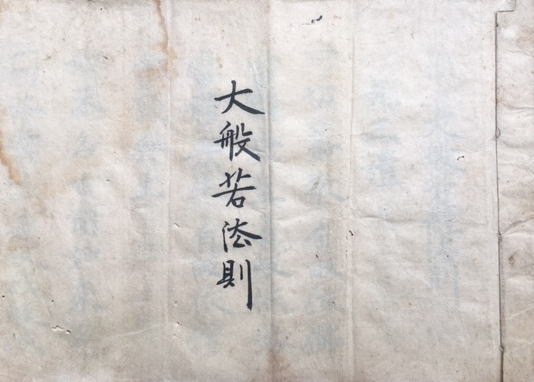 大般若法則